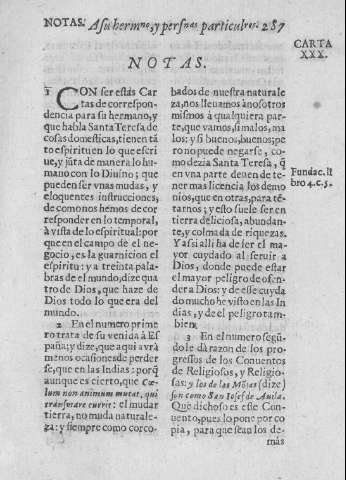 NOTAS. A su hermno, y persnas particulres. 287
CARTA
XXX.
NOTAS.
1 CON ser estás Car
tas de correspon-
dencia para su hermano, y
que habla Santa Teresa de
cosas domesticas, tienen tã
to espiritu en lo que escri
ue, y jũta de manera lo hu-
mano con lo Diuino; que
pueden ser vnas mudas, y
eloquentes instrucciones,
de como nos hemos de cor
responder en lo temporal,
à vista de lo espiritual: por
que en el campo dẽ el ne-
gocio, es la guarnicion el
espiritu: y a treinta pala-
bras de el mundo, dize qua
tro de Dios, que haze de
Dios todo lo que era del
mundo.
2 En el numero prime
ro trata de su venida à Es
paña; y dize, que aqui avrà
menos ocasiones de perder
se, que en las Indias: porq̃
aunque es cierto, que Cœ-
lum non animum mutat, qui
trans mare currit: el mudar
tierra, no muda naturale-
ga: y siempre como corco-
bados de nuestra naturale
za, nos lleuamos à nosotros
mismos à qualquiera par-
te, que vamos, si malos, ma
los; y si buenos, buenos; pe
ro no puede negarse, co-
mo dezia Santa Teresa, q̃
en vna parte deuen de te-
ner mas licencia los demo
nios, que en otras, para tẽ-
tarnos; y esto suele ser en
tierra deliciosa, abundan-
te, y colmada de riquezas.
Y assi alli ha de ser el ma-
yor cuydado al seruir a
Dios, donde puede estar
el mayor peligro de ofen-
der a Dios: y de esse cuyda
do mucho he visto en las In
dias, y de el peligro tam-
bien.
3 En el numero segũ-
do le dà razon de los pro-
gressos de los Conuentos
de Religiosas, y Religio-
sas: y los de las Mõjas (dize)
son como San Iosef de Auila.
Que dichoso es este Con-
uento, pues lo pone por co
pia, para que sean los de-
más
Fundac. li
bro 4. c. 5.